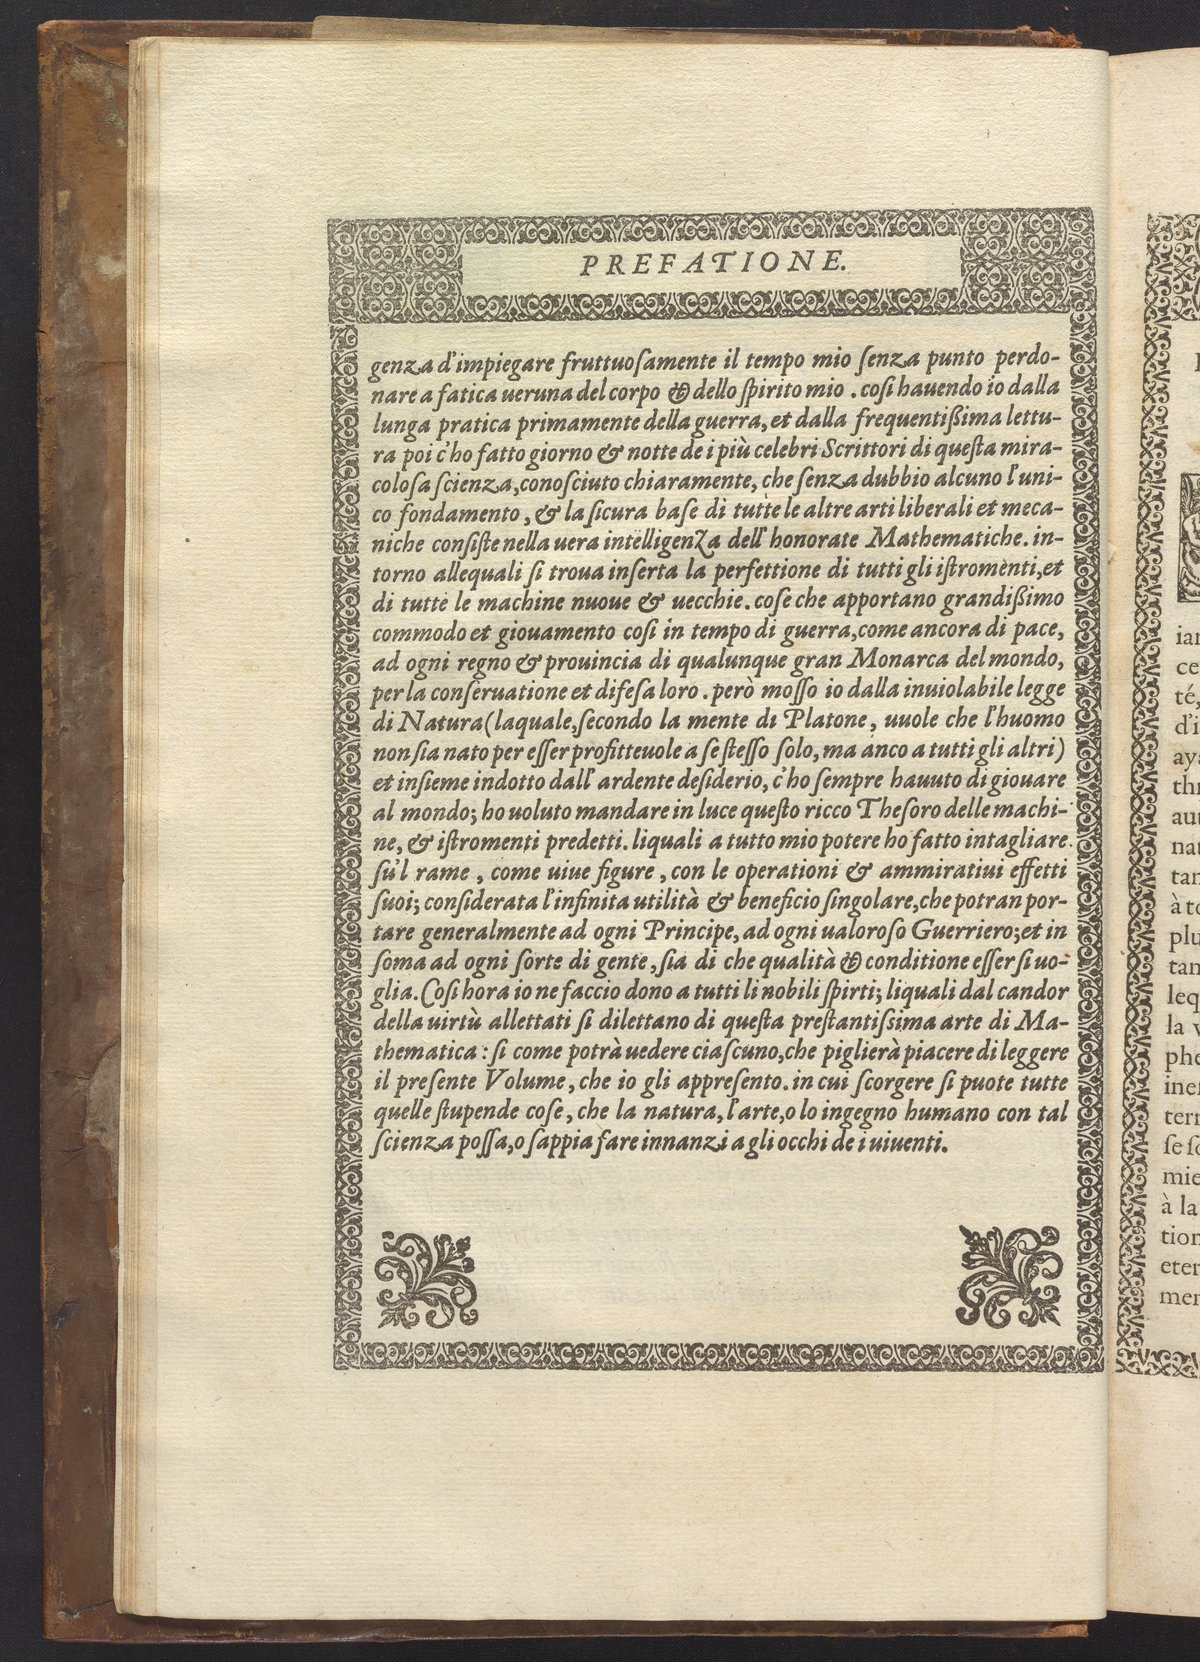 PREFATIONE.
genza d'impiegare fruttuosamente il tempo mio senza punto perdo-
nare a fatica ueruna del corpo & dello spirito mio . cosi hauendo io dalla
lunga pratica primamente della guerra, et dalla frequentißima lettu-
ra poi c'ho fatto giorno & notte de i più celebri Scrittori di questa mira-
colosa scienza, conosciuto chiaramente, che senza dubbio alcuno l'uni-
co fondamento, & la sicura base di tutte le altre arti liberali et meca-
niche consiste nella uera intelligenza dell' honorate Mathematiche. in-
torno allequali si troua inserta la perfettione di tutti gli istromenti, et
di tutte le machine nuoue & uecchie. cose che apportano grandißimo
commodo et giouamento cosi in tempo di guerra, come ancora di pace,
ad ogni regno & prouincia di qualunque gran Monarca del mondo,
per la conseruatione et difesa loro . però mosso io dalla inuiolabile legge
di Natura (laquale, secondo la mente di Platone, uuole che l'huomo
non sia nato per esser profitteuole a se stesso solo, ma anco a tutti gli altri)
et insieme indotto dall' ardente desiderio, c'ho sempre hauuto di giouare
al mondo; ho uoluto mandare in luce questo ricco Thesoro delle machi-
ne, & istromenti predetti. liquali a tutto mio potere ho fatto intagliare
su'l rame , come uiue figure , con le operationi & ammiratiui effetti
suoi; considerata l'infinita utilità & beneficio singolare, che potran por-
tare generalmente ad ogni Principe, ad ogni ualoroso Guerriero; et in
soma ad ogni sorte di gente, sia di che qualità & conditione esser si uo-
glia. Cosi hora io ne faccio dono a tutti li nobili spirti; liquali dal candor
della uirtù allettati si dilettano di questa prestantissima arte di Ma-
thematica : si come potrà uedere ciascuno, che piglierà piacere di leggere
il presente Volume, che io gli appresento. in cui scorgere si puote tutte
quelle stupende cose, che la natura, l'arte, o lo ingegno humano con tal
scienza possa, o sappia fare innanzi a gli occhi de i uiuenti.